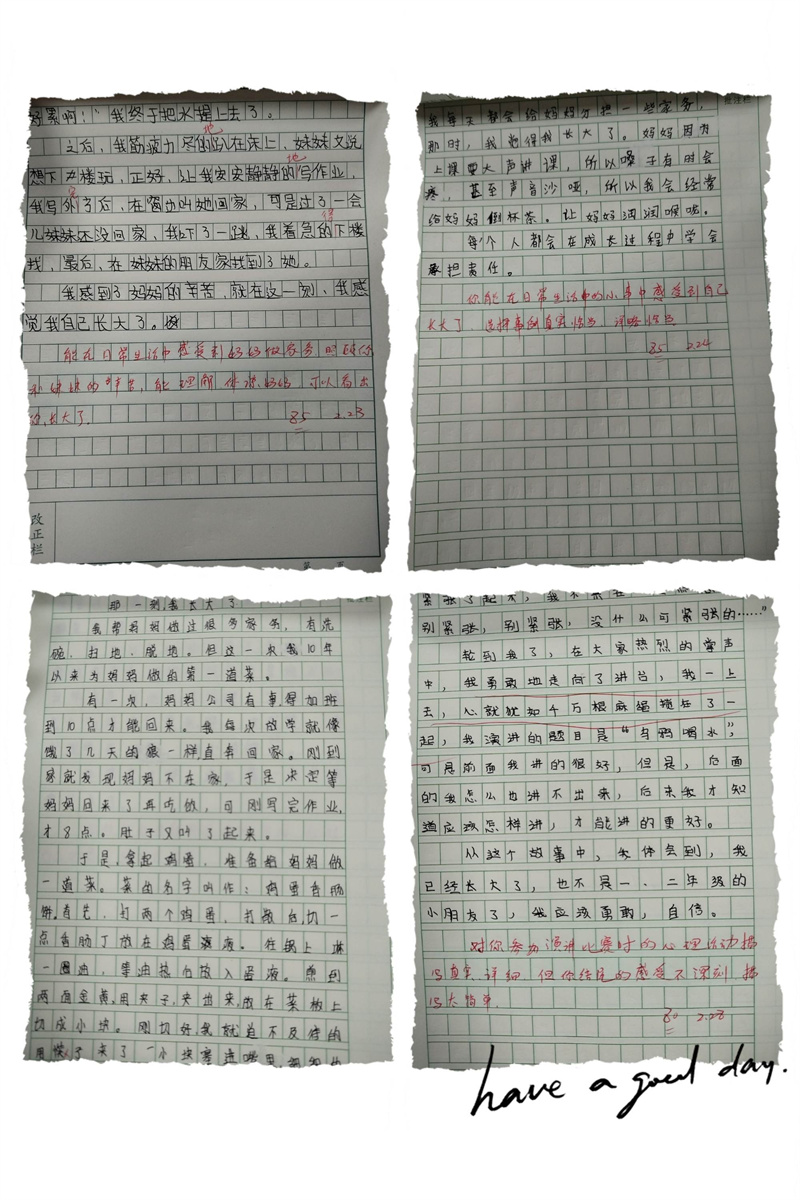 好累啊！"我终于把水提上去了。
之后，我筋疲力尽的趴在床上，妹妹又说
地
想下楼玩，正好，让我安安静静的写作业，
地
我写完了后，在窗边叫她回家，可是过了一会
完
儿妹妹还没回家，我吓了一跳，我着急的下楼
得
找，最后，在妹妹的朋友家找到了她。
我感到了妈妈的辛苦，就在这一刻，我感
觉我自己长大了。
能在日常生活中感受到妈妈做家务、照顾你
和妹妹的辛苦，能理解体谅妈妈，可以看出
你长大了。
85 2.23
改正栏
我每天都会给妈妈分担一些家务，
那时，我觉得我长大了。妈妈因为
上课要大声讲课，所以嗓子有时会
疼，甚至声音沙哑，所以我会经常
给妈妈倒杯茶。让妈妈润润喉咙。
每个人都会在成长过程中学会
承担责任。
你能在日常生活中的小事中感受到自己
长大了，选择事例真实恰当，详略恰当
85 2.24
那一刻，我长大了
我帮妈妈做过很多家务，有洗
碗、扫地、脱地。但这一次我10年
以来为妈妈做的第一道菜。
有一次，妈妈公司有事，得加班
到10点才能回来。我每次放学就像
饿了几天的狼一样直奔回家。刚到
家就发现妈妈不在家，于是决定等
妈妈回来了再吃饭，可刚写完作业，
才8点。肚子又叫了起来。
于是，拿起鸡蛋，准备给妈妈做
一道菜。菜的名字叫作：鸡蛋香肠
饼。首先，打两个鸡蛋，打散后，切一
点香肠丁放在鸡蛋液液。在锅上淋
一圈油，等油热后放入蛋液。煎到
两面金黄，用夹子，夹出来，放在菜板上
切成小块。刚切好，我就迫不及待的
用筷子夹了一小块塞进嘴里
别紧张，别紧张，没什么可紧张的……"
轮到我了，在大家热烈的掌声
中，我勇敢地走向了讲台，我一上
去，心就犹如千万根麻绳捆在了一
起，我演讲的题目是"乌鸦喝水"，
可是前面我讲的很好，但是，后面
的我怎么也讲不出来，后来我才知
道应该怎样讲，才能讲的更好。
从这个故事中，我体会到，我
已经长大了，也不是一、二年级的
小朋友了，我应该勇敢，自信。
对你参加演讲比赛时的心理活动描
写真实、详细，但你结尾的感受不深刻，描
写太简单。
80 2.23
have a good day.